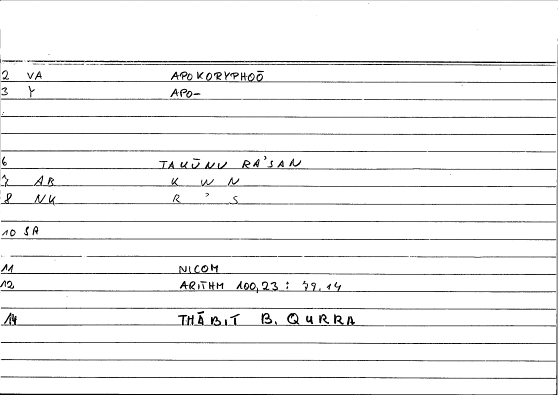 2 VA APOKORYPHOŌ
3 Y APO-
6 TAKŪNU RA'SAN
7 AB K W N
8 NK R ' S
10 SA
11 NICOM
12 ARITHM 100,23 : 79.14
14 THĀBIT B. QURRA